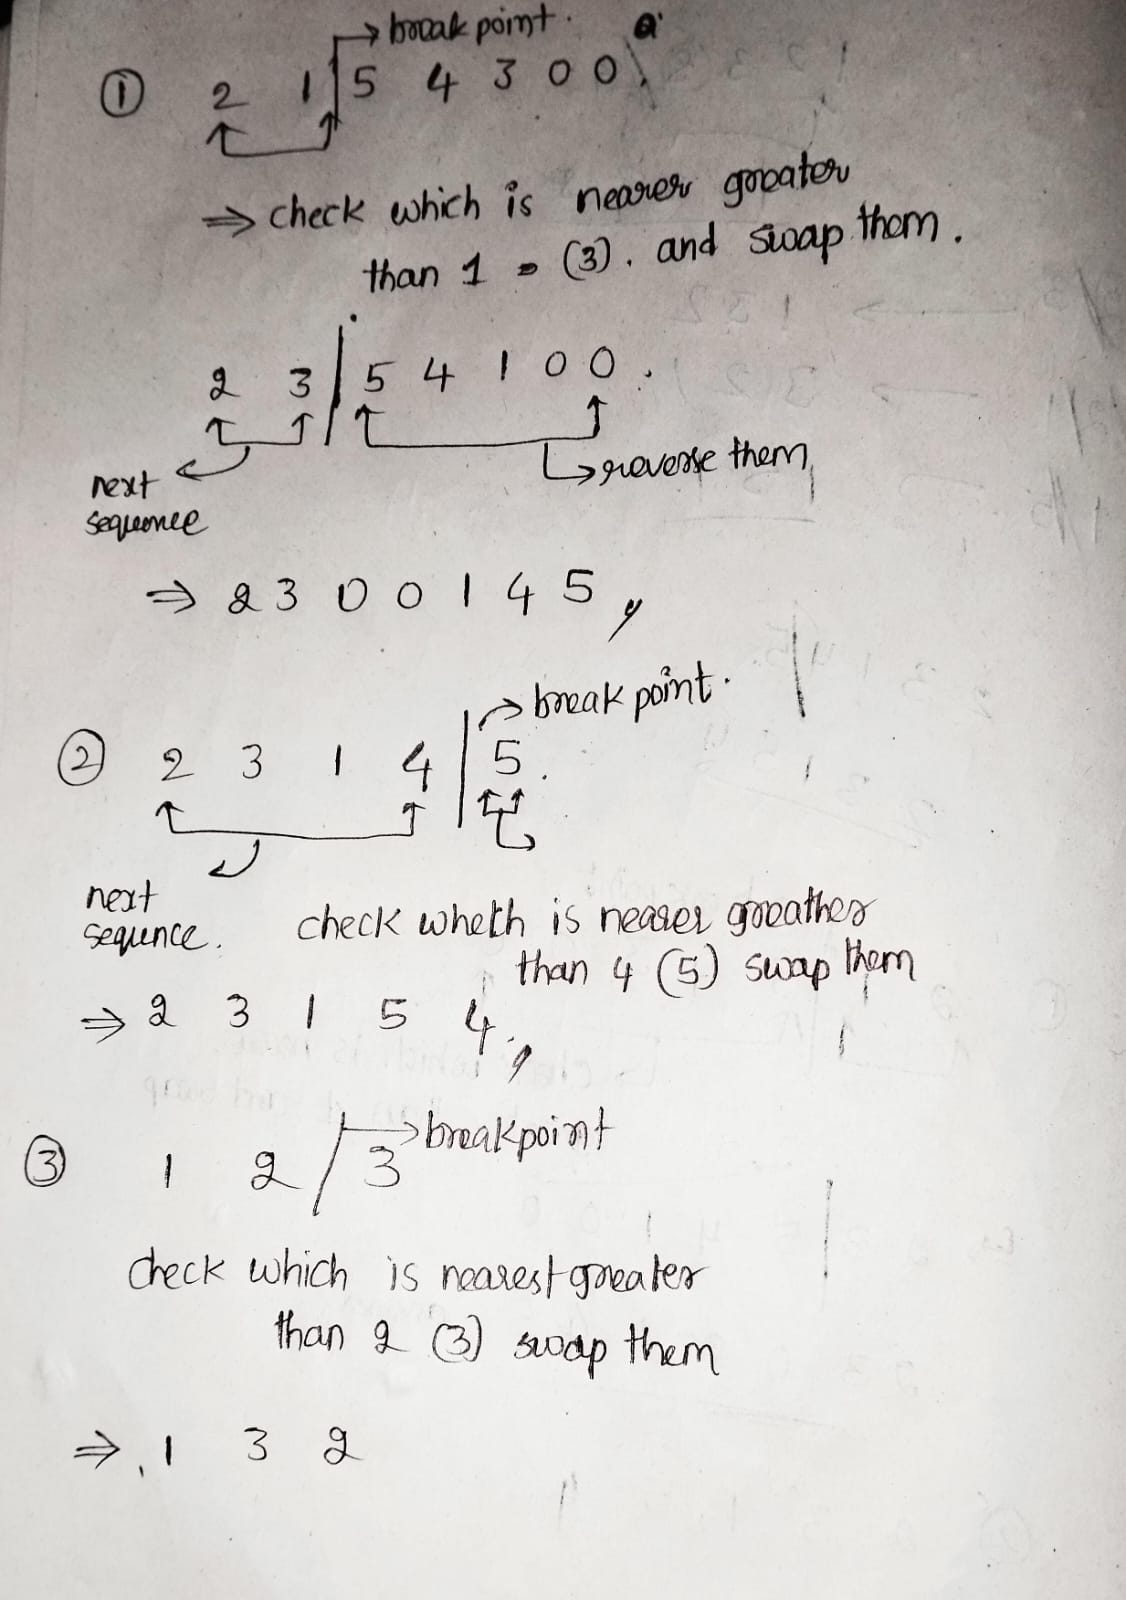 → break point.
① 2 1 | 5 4 3 0 0
⇒ check which is nearer greater
than 1 = (3). and swap them.
2 3 | 5 4 1 0 0.
↳ reverse them
next
sequence
⇒ 2 3 0 0 1 4 5
→ break point.
② 2 3 1 4 | 5.
next
sequnce. check wheth is nearer greather
than 4 (5) swap them
⇒ 2 3 1 5 4
→ breakpoint
③ 1 2 / 3
check which is nearest greater
than 2 (3) swap them
⇒ 1 3 2